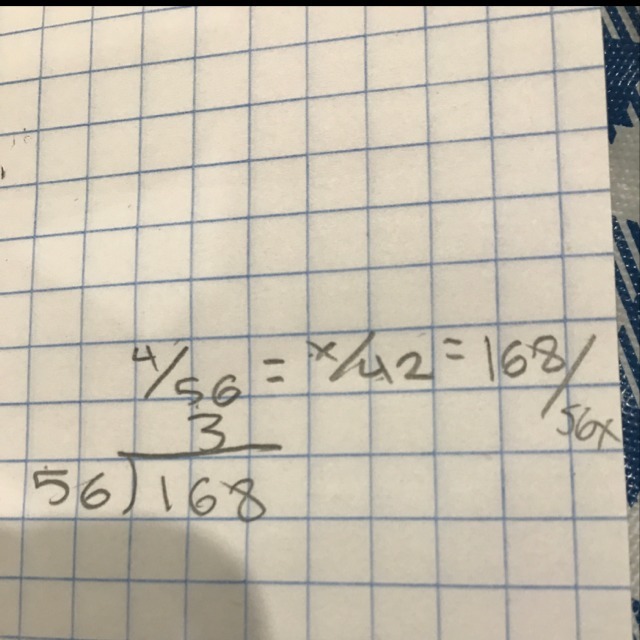 4/56 = x/42 = 168/56x
3
56)168